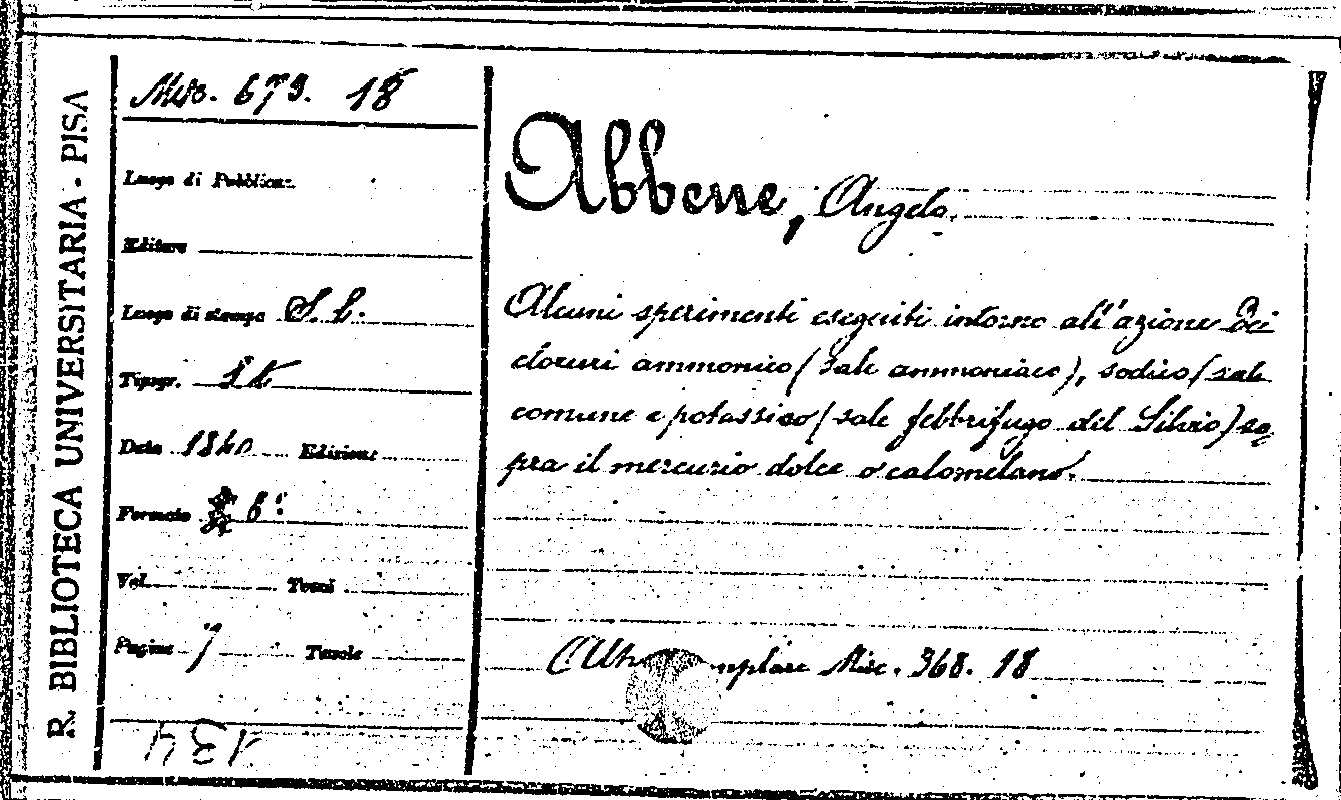 R. BIBLIOTECA UNIVERSITARIA - PISA
Misc. 673. 18
Luogo di Pubblicaz.
Editore
Luogo di stampa S. l.
Tipogr. s. t.
Data 1840 Edizione
Formato 8°
Vol. Tomi
Pagine 7 Tavole
Abbene, Angelo.
Alcuni sperimenti eseguiti intorno all'azione dei
cloruri ammonico (sale ammoniaco), sodico (sale
comune e potassico (sale febbrifugo del Silvio) so-
pra il mercurio dolce o calomelano.
(Altro emplare Misc. 368. 18